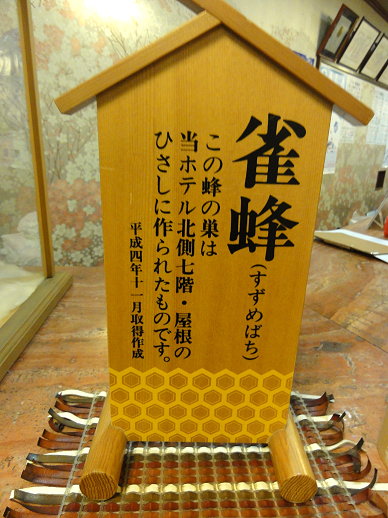 雀蜂(すずめばち)
この蜂の巣は
当ホテル北側七階・屋根の
ひさしに作られたものです。
平成四年十一月取得作成